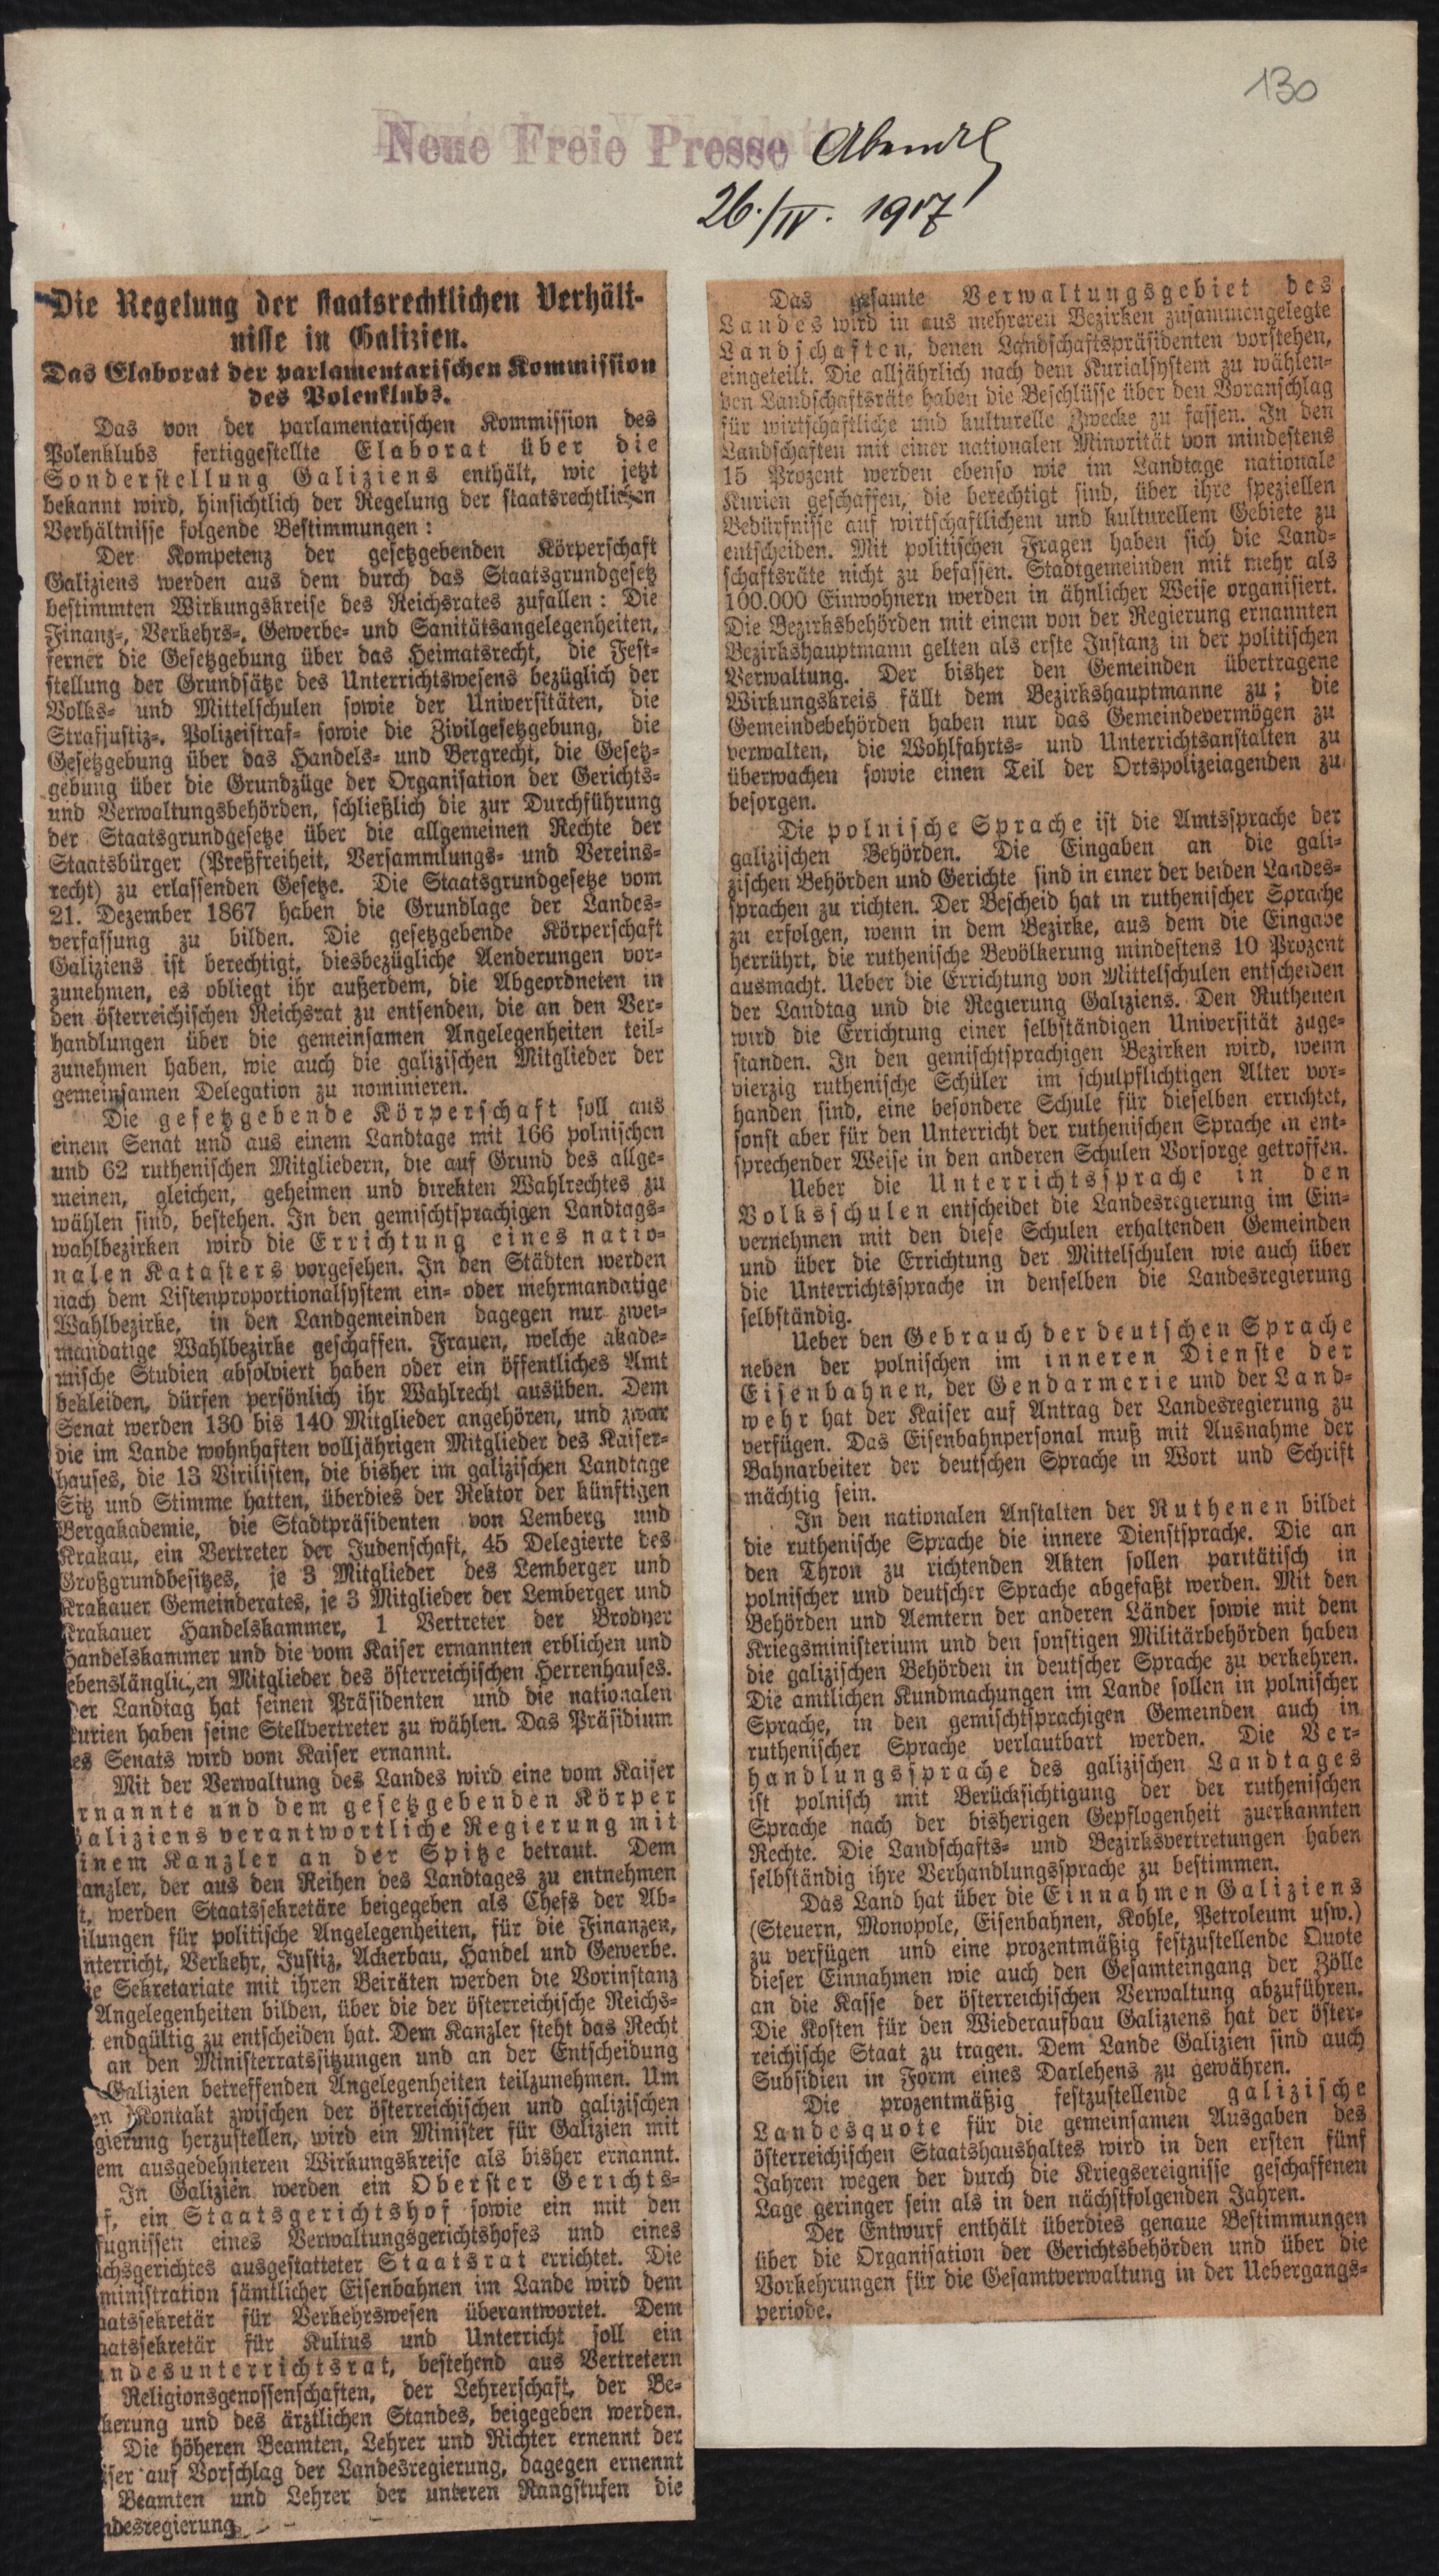 130
Neue Freie Presse Abendbl
26./IV. 1917
Die Regelung der staatsrechtlichen Verhält-
nisse in Galizien.
Das Elaborat der parlamentarischen Kommission
des Polenklubs.
Das von der parlamentarischen Kommission des
Polenklubs fertiggestellte Elaborat über die
Sonderstellung Galiziens enthält, wie jetzt
bekannt wird, hinsichtlich der Regelung der staatsrechtlichen
Verhältnisse folgende Bestimmungen:
Der Kompetenz der gesetzgebenden Körperschaft
Galiziens werden aus dem durch das Staatsgrundgesetz
bestimmten Wirkungskreise des Reichsrates zufallen: Die
Finanz-, Verkehrs-, Gewerbe- und Sanitätsangelegenheiten,
ferner die Gesetzgebung über das Heimatsrecht, die Fest-
stellung der Grundsätze des Unterrichtswesens bezüglich der
Volks- und Mittelschulen sowie der Universitäten, die
Strafjustiz-, Polizeistraf- sowie die Zivilgesetzgebung, die
Gesetzgebung über das Handels- und Bergrecht, die Gesetz-
gebung über die Grundzüge der Organisation der Gerichts-
und Verwaltungsbehörden, schließlich die zur Durchführung
der Staatsgrundgesetze über die allgemeinen Rechte der
Staatsbürger (Preßfreiheit, Versammlungs- und Vereins-
recht) zu erlassenden Gesetze. Die Staatsgrundgesetze vom
21. Dezember 1867 haben die Grundlage der Landes-
verfassung zu bilden. Die gesetzgebende Körperschaft
Galiziens ist berechtigt, diesbezügliche Aenderungen vor-
zunehmen, es obliegt ihr außerdem, die Abgeordneten in
den österreichischen Reichsrat zu entsenden, die an den Ver-
handlungen über die gemeinsamen Angelegenheiten teil-
zunehmen haben, wie auch die galizischen Mitglieder der
gemeinsamen Delegation zu nominieren.
Die gesetzgebende Körperschaft soll aus
einem Senat und aus einem Landtage mit 166 polnischen
und 62 ruthenischen Mitgliedern, die auf Grund des allge-
meinen, gleichen, geheimen und direkten Wahlrechtes zu
wählen sind, bestehen. In den gemischtsprachigen Landtags-
wahlbezirken wird die Errichtung eines natio-
nalen Katasters vorgesehen. In den Städten werden
nach dem Listenproportionalsystem ein- oder mehrmandatige
Wahlbezirke, in den Landgemeinden dagegen nur zwei-
mandatige Wahlbezirke geschaffen. Frauen, welche akade-
mische Studien absolviert haben oder ein öffentliches Amt
bekleiden, dürfen persönlich ihr Wahlrecht ausüben. Dem
Senat werden 130 bis 140 Mitglieder angehören, und zwar
die im Lande wohnhaften volljährigen Mitglieder des Kaiser-
hauses, die 13 Virilisten, die bisher im galizischen Landtage
Sitz und Stimme hatten, überdies der Rektor der künftigen
Bergakademie, die Stadtpräsidenten von Lemberg und
Krakau, ein Vertreter der Judenschaft, 45 Delegierte des
Großgrundbesitzes, je 3 Mitglieder des Lemberger und
Krakauer Gemeinderates, je 3 Mitglieder der Lemberger und
Krakauer Handelskammer, 1 Vertreter der Brodyer
Handelskammer und die vom Kaiser ernannten erblichen und
ebenslänglichen Mitglieder des österreichischen Herrenhauses.
Der Landtag hat seinen Präsidenten und die nationalen
kurien haben seine Stellvertreter zu wählen. Das Präsidium
es Senats wird vom Kaiser ernannt.
Mit der Verwaltung des Landes wird eine vom Kaiser
rnannte und dem gesetzgebenden Körper
Galiziens verantwortliche Regierung mit
inem Kanzler an der Spitze betraut. Dem
anzler, der aus den Reihen des Landtages zu entnehmen
t, werden Staatssekretäre beigegeben als Chefs der Ab-
ilungen für politische Angelegenheiten, für die Finanzen,
nterricht, Verkehr, Justiz, Ackerbau, Handel und Gewerbe.
ie Sekretariate mit ihren Beiräten werden die Vorinstanz
Angelegenheiten bilden, über die der österreichische Reichs-
t endgültig zu entscheiden hat. Dem Kanzler steht das Recht
an den Ministerratssitzungen und an der Entscheidung
Galizien betreffenden Angelegenheiten teilzunehmen. Um
en Kontakt zwischen der österreichischen und galizischen
gierung herzustellen, wird ein Minister für Galizien mit
em ausgedehnteren Wirkungskreise als bisher ernannt.
In Galizien werden ein Oberster Gerichts-
f, ein Staatsgerichtshof sowie ein mit den
fugnissen eines Verwaltungsgerichtshofes und eines
ichsgerichtes ausgestatteter Staatsrat errichtet. Die
ministration sämtlicher Eisenbahnen im Lande wird dem
aatssekretär für Verkehrswesen überantwortet. Dem
aatssekretär für Kultus und Unterricht soll ein
ndesunterrichtsrat, bestehend aus Vertretern
Religionsgenossenschaften, der Lehrerschaft, der Be-
kerung und des ärztlichen Standes, beigegeben werden.
Die höheren Beamten, Lehrer und Richter ernennt der
iser auf Vorschlag der Landesregierung, dagegen ernennt
Beamten und Lehrer der unteren Rangstufen die
ndesregierung.
Das gesamte Verwaltungsgebiet des
Landes wird in aus mehreren Bezirken zusammengelegte
Landschaften, denen Landschaftspräsidenten vorstehen,
eingeteilt. Die alljährlich nach dem Kurialsystem zu wählen-
den Landschaftsräte haben die Beschlüsse über den Voranschlag
für wirtschaftliche und kulturelle Zwecke zu fassen. In den
Landschaften mit einer nationalen Minorität von mindestens
15 Prozent werden ebenso wie im Landtage nationale
Kurien geschaffen, die berechtigt sind, über ihre speziellen
Bedürfnisse auf wirtschaftlichem und kulturellem Gebiete zu
entscheiden. Mit politischen Fragen haben sich die Land-
schaftsräte nicht zu befassen. Stadtgemeinden mit mehr als
100.000 Einwohnern werden in ähnlicher Weise organisiert.
Die Bezirksbehörden mit einem von der Regierung ernannten
Bezirkshauptmann gelten als erste Instanz in der politischen
Verwaltung. Der bisher den Gemeinden übertragene
Wirkungskreis fällt dem Bezirkshauptmanne zu; die
Gemeindebehörden haben nur das Gemeindevermögen zu
verwalten, die Wohlfahrts- und Unterrichtsanstalten zu
überwachen sowie einen Teil der Ortspolizeiagenden zu
besorgen.
Die polnische Sprache ist die Amtssprache der
galizischen Behörden. Die Eingaben an die gali-
zischen Behörden und Gerichte sind in einer der beiden Landes-
sprachen zu richten. Der Bescheid hat in ruthenischer Sprache
zu erfolgen, wenn in dem Bezirke, aus dem die Eingabe
herrührt, die ruthenische Bevölkerung mindestens 10 Prozent
ausmacht. Ueber die Errichtung von Mittelschulen entscheiden
der Landtag und die Regierung Galiziens. Den Ruthenen
wird die Errichtung einer selbständigen Universität zuge-
standen. In den gemischtsprachigen Bezirken wird, wenn
vierzig ruthenische Schüler im schulpflichtigen Alter vor-
handen sind, eine besondere Schule für dieselben errichtet,
sonst aber für den Unterricht der ruthenischen Sprache in ent-
sprechender Weise in den anderen Schulen Vorsorge getroffen.
Ueber die Unterrichtssprache in den
Volksschulen entscheidet die Landesregierung im Ein-
vernehmen mit den diese Schulen erhaltenden Gemeinden
und über die Errichtung der Mittelschulen wie auch über
die Unterrichtssprache in denselben die Landesregierung
selbständig.
Ueber den Gebrauch der deutschen Sprache
neben der polnischen im inneren Dienste der
Eisenbahnen, der Gendarmerie und der Land-
wehr hat der Kaiser auf Antrag der Landesregierung zu
verfügen. Das Eisenbahnpersonal muß mit Ausnahme der
Bahnarbeiter der deutschen Sprache in Wort und Schrift
mächtig sein.
In den nationalen Anstalten der Ruthenen bildet
die ruthenische Sprache die innere Dienstsprache. Die an
den Thron zu richtenden Akten sollen paritätisch in
polnischer und deutscher Sprache abgefaßt werden. Mit den
Behörden und Aemtern der anderen Länder sowie mit dem
Kriegsministerium und den sonstigen Militärbehörden haben
die galizischen Behörden in deutscher Sprache zu verkehren.
Die amtlichen Kundmachungen im Lande sollen in polnischer
Sprache, in den gemischtsprachigen Gemeinden auch in
ruthenischer Sprache verlautbart werden. Die Ver-
handlungssprache des galizischen Landtages
ist polnisch mit Berücksichtigung der der ruthenischen
Sprache nach der bisherigen Gepflogenheit zuerkannten
Rechte. Die Landschafts- und Bezirksvertretungen haben
selbständig ihre Verhandlungssprache zu bestimmen.
Das Land hat über die Einnahmen Galiziens
(Steuern, Monopole, Eisenbahnen, Kohle, Petroleum usw.)
zu verfügen und eine prozentmäßig festzustellende Quote
dieser Einnahmen wie auch den Gesamteingang der Zölle
an die Kasse der österreichischen Verwaltung abzuführen.
Die Kosten für den Wiederaufbau Galiziens hat der öster-
reichische Staat zu tragen. Dem Lande Galizien sind auch
Subsidien in Form eines Darlehens zu gewähren.
Die prozentmäßig festzustellende galizische
Landesquote für die gemeinsamen Ausgaben des
österreichischen Staatshaushaltes wird in den ersten fünf
Jahren wegen der durch die Kriegsereignisse geschaffenen
Lage geringer sein als in den nächstfolgenden Jahren.
Der Entwurf enthält überdies genaue Bestimmungen
über die Organisation der Gerichtsbehörden und über die
Vorkehrungen für die Gesamtverwaltung in der Uebergangs-
periode.